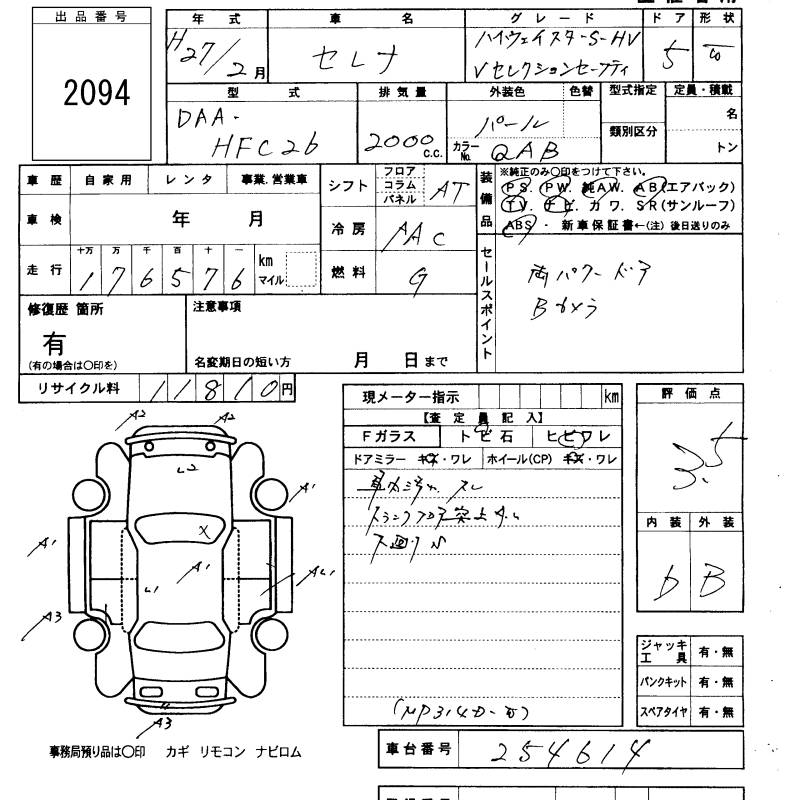 出品番号
2094
年 式
H27/2月
車 名
セレナ
グレード
ハイウェイスターS-HV
Vセレクションセーフティ
ドア
5
形状
型 式
DAA-
HFC26
排気量
2000 c.c.
外装色
パール
カラーNo. QAB
色替
型式指定
類別区分
定員・積載
名
トン
車歴 自家用 レンタ 事業.営業車
車検 年 月
走行 十万 万 千 百 十 一
1 7 6 5 7 6
km
マイル
シフト
フロア
コラム
パネル
AT
冷房
AAC
燃料
G
装備品
※純正のみ○印をつけて下さい。
PS. PW. 純AW. AB(エアバック)
TV. ナビ. カワ. SR(サンルーフ)
ABS ・ 新車保証書←(注)後日送りのみ
セールスポイント
両パワードア
Bカメラ
修復歴 箇所
有
(有の場合は○印を)
注意事項
名変期日の短い方 月 日まで
リサイクル料 11810円
現メーター指示 km
【査定員記入】
Fガラス トビ石 ヒビワレ
ドアミラー キズ・ワレ ホイール(CP) キズ・ワレ
評価点
3.5
内装 外装
D B
A2
A2
L2
A1
X
A1
A1
L1
AL1
A3
A3
ジャッキ
工具
有・無
パンクキット 有・無
スペアタイヤ 有・無
事務局預り品は○印 カギ リモコン ナビロム
車台番号 254614